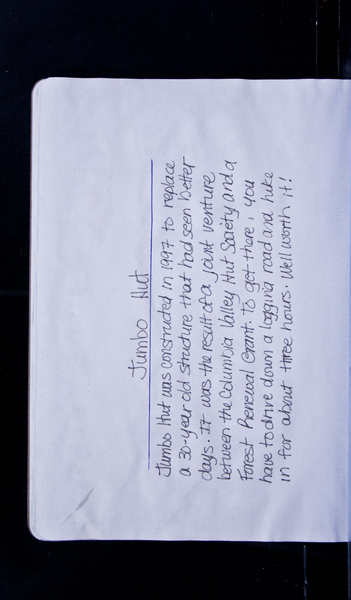 Jumbo Hut
Jumbo Hut was constructed in 1997 to replace
a 30-year old structure that had seen better
days. It was the result of a joint venture
between the Columbia Valley Hut Society and a
Forest Renewal Grant. To get there, you
have to drive down a logging road and hike
in for about three hours. Well worth it!